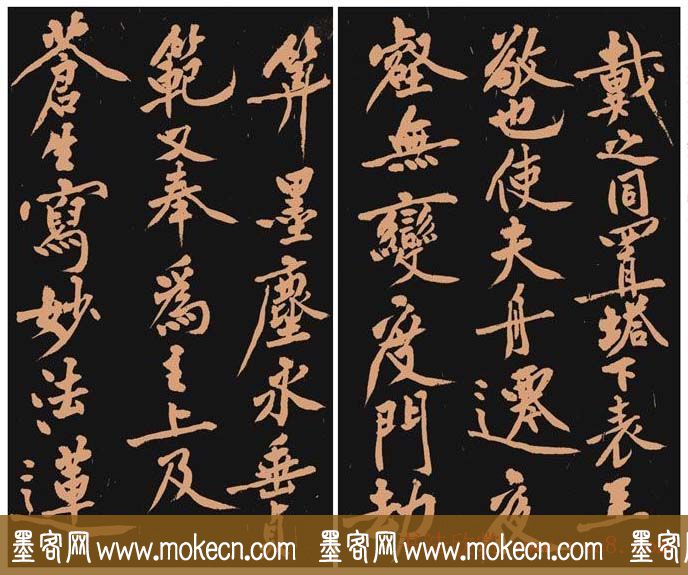 戴之同置塔下表至
敬也使夫舟遷夜
壑無變度門劫
筭墨塵永垂貞
範又奉爲主上及
蒼生寫妙法蓮
墨客网 www.mokecn.com 墨客网 www.mokecn.com 墨客网